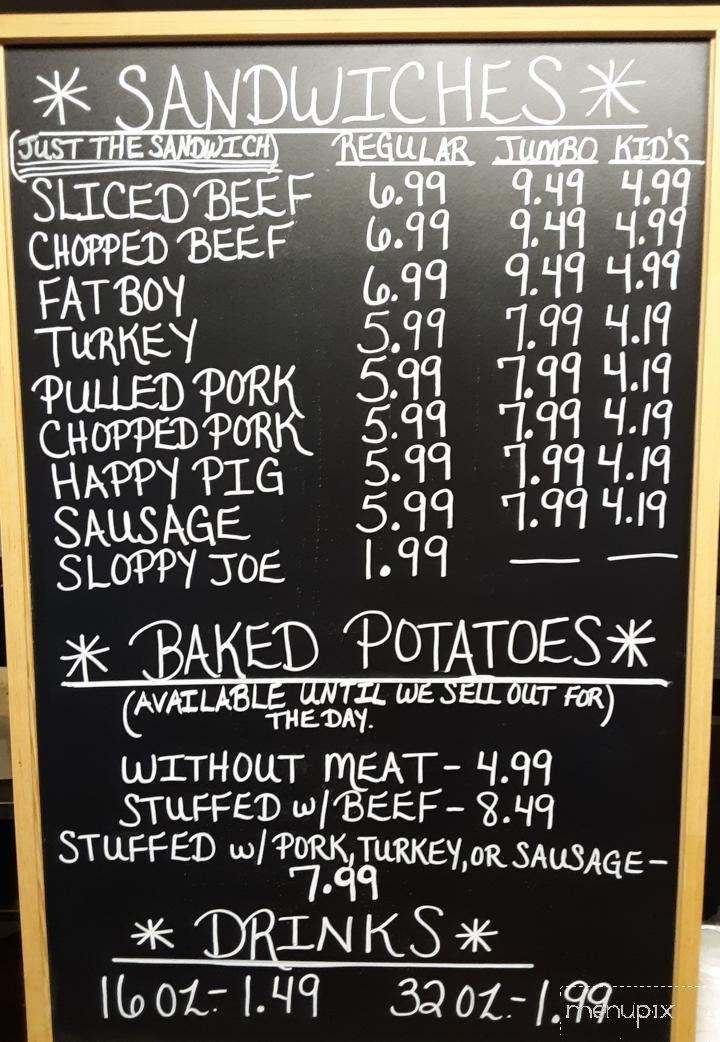 * SANDWICHES *
(JUST THE SANDWICH) REGULAR JUMBO KID'S
SLICED BEEF 6.99 9.49 4.99
CHOPPED BEEF 6.99 9.49 4.99
FATBOY 6.99 9.49 4.99
TURKEY 5.99 7.99 4.19
PULLED PORK 5.99 7.99 4.19
CHOPPED PORK 5.99 7.99 4.19
HAPPY PIG 5.99 7.99 4.19
SAUSAGE 5.99 7.99 4.19
SLOPPY JOE 1.99 — —
* BAKED POTATOES *
(AVAILABLE UNTIL WE SELL OUT FOR)
THE DAY.
WITHOUT MEAT - 4.99
STUFFED w/ BEEF - 8.49
STUFFED w/ PORK, TURKEY, OR SAUSAGE -
7.99
* DRINKS *
16 OZ.- 1.49 32 OZ.- 1.99
menupix